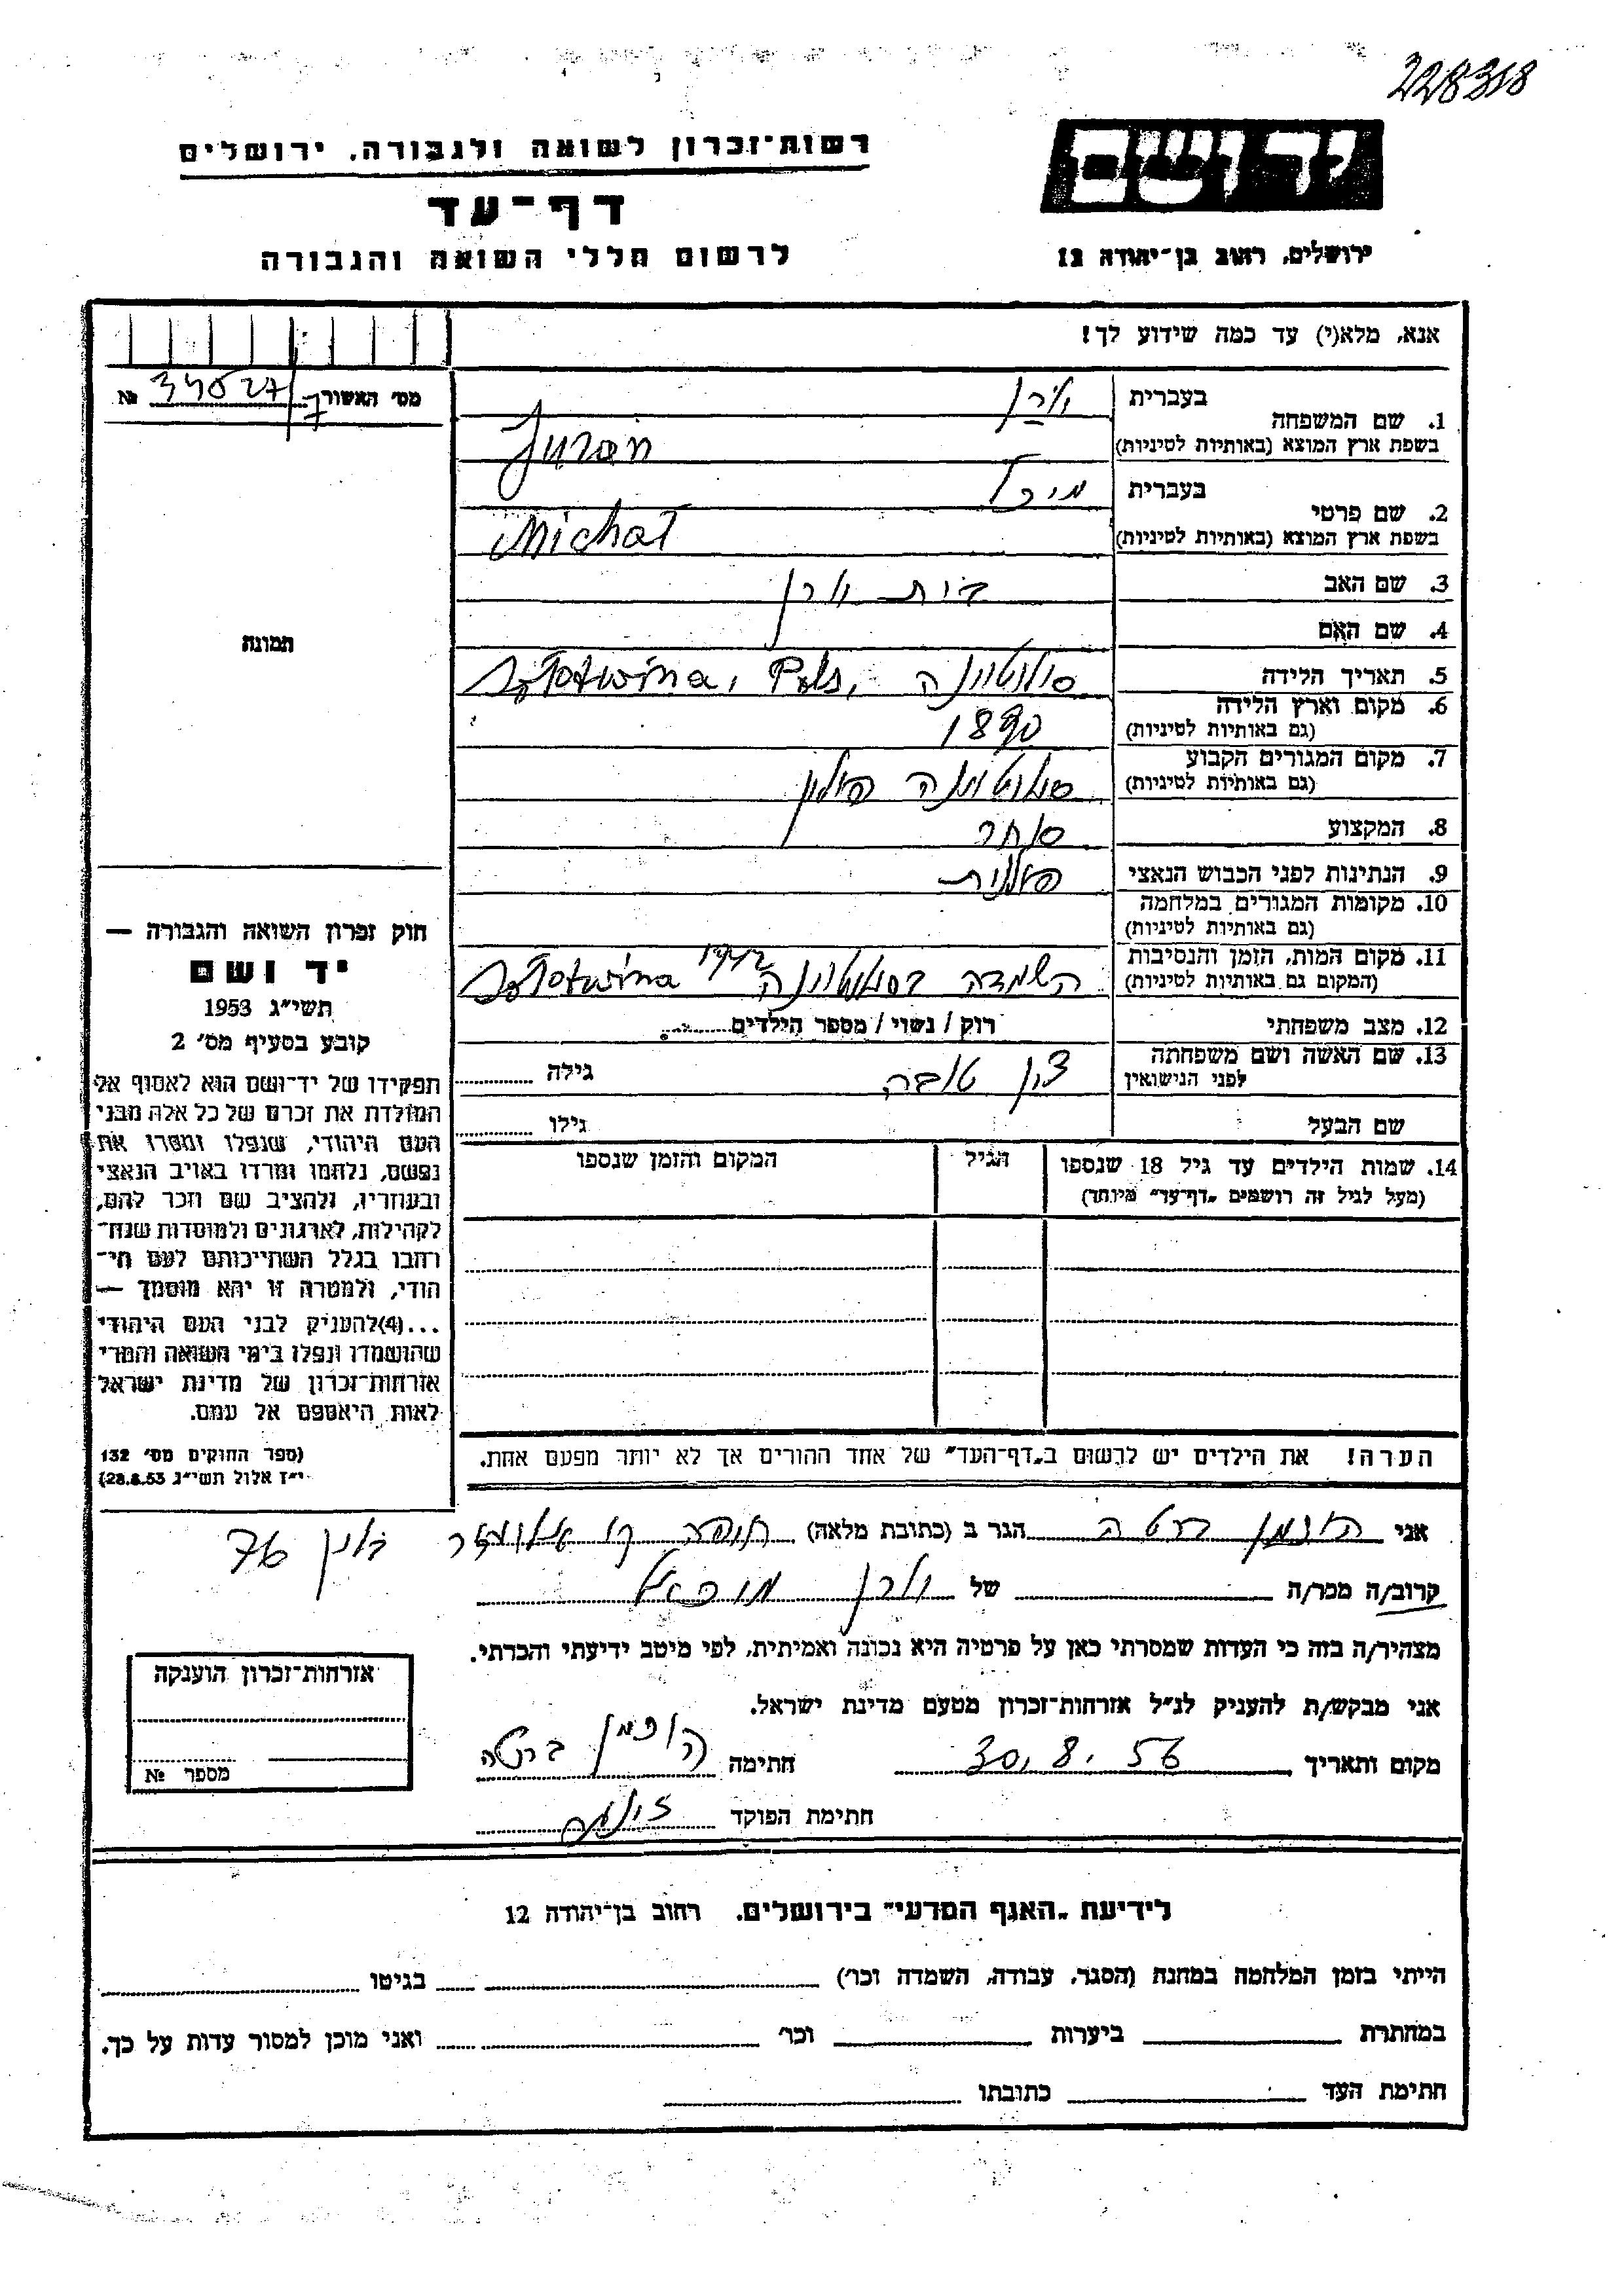 228318
רשות־זכרון לשואה ולגבורה, ירושלים
דף־עד
לרשום חללי השואה והגבורה
יד ושם
ירושלים, רחוב בן־יהודה 12
אנא, מלא(י) עד כמה שידוע לך!
מס׳ האשור № 34027/7
1. שם המשפחה
בעברית
בשפת ארץ המוצא (באותיות לטיניות) Juran
2. שם פרטי
בעברית מיכל
בשפת ארץ המוצא (באותיות לטיניות) Michał
3. שם האב
4. שם האם
5. תאריך הלידה
6. מקום וארץ הלידה
(גם באותיות לטיניות) 1890
7. מקום המגורים הקבוע
(גם באותיות לטיניות) פולין
8. המקצוע סוחר
9. הנתינות לפני הכבוש הנאצי פולנית
10. מקומות המגורים במלחמה
(גם באותיות לטיניות)
11. מקום המות, הזמן והנסיבות
(המקום גם באותיות לטיניות) השמדה 1942
12. מצב משפחתי רווק / נשוי / מספר הילדים
13. שם האשה ושם משפחתה
לפני הנישואין טובה גילה
שם הבעל גילו
14. שמות הילדים עד גיל 18 שנספו הגיל המקום והזמן שנספו
(מעל לגיל זה רושמים „דף־עד״ מיוחד)
הערה! את הילדים יש לרשום ב„דף־העד״ של אחד ההורים אך לא יותר מפעם אחת.
תמונה
חוק זכרון השואה והגבורה —
יד ושם
תשי״ג 1953
קובע בסעיף מס׳ 2
תפקידו של יד־ושם הוא לאסוף אל
המולדת את זכרם של כל אלה מבני
העם היהודי, שנפלו ומסרו את
נפשם, נלחמו ומרדו באויב הנאצי
ובעוזריו, ולהציב שם וזכר להם,
לקהילות, לארגונים ולמוסדות שנח־
רבו בגלל השתייכותם לעם הי־
הודי, ולמטרה זו יהא מוסמך —
...(4)להעניק לבני העם היהודי
שהושמדו ונפלו בימי השואה והמרי
אזרחות־זכרון של מדינת ישראל
לאות היאספם אל עמם.
(ספר החוקים מס׳ 132
י״ז אלול תשי״ג 28.8.53)
אני הופמן ברטה הגר ב (כתובת מלאה) חיפה 76
קרוב/ה מכר/ה של
מצהיר/ה בזה כי העדות שמסרתי כאן על פרטיה היא נכונה ואמיתית, לפי מיטב ידיעתי והכרתי.
אני מבקש/ת להעניק לנ״ל אזרחות־זכרון מטעם מדינת ישראל.
מקום ותאריך 30.8.56 חתימה הופמן ברטה
חתימת הפוקד
אזרחות־זכרון הוענקה
מספר №
לידיעת „האגף המדעי״ בירושלים. רחוב בן־יהודה 12
הייתי בזמן המלחמה במחנה (הסגר, עבודה, השמדה וכו׳) בגיטו
במחתרת ביערות וכו׳ ואני מוכן למסור עדות על כך.
חתימת העד כתובתו